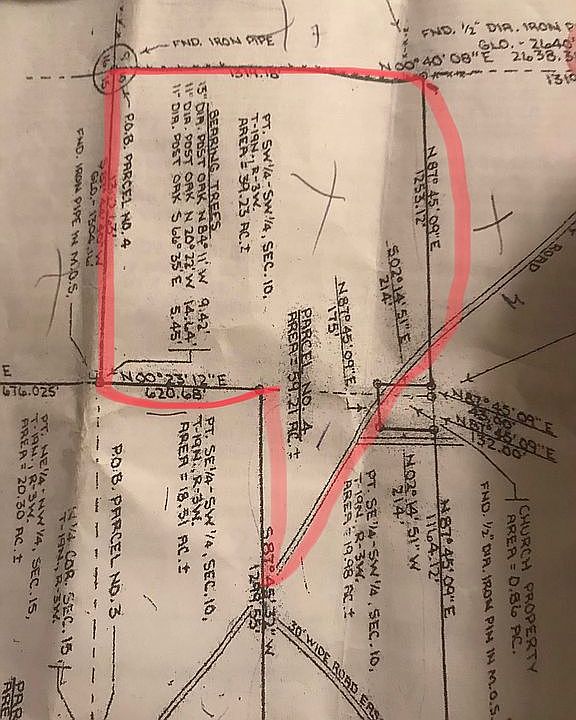 FND. IRON PIPE
FND. 1/2" DIR. IRON P
GLO. - 2640'
N 00° 40' 08" E 2638.3
1319.18
1319
16
FND. IRON PIPE IN M.O.S.
P.O.B. PARCEL NO. 4
BEARING TREES
13" DIR. POST OAK N 84° 11' W 9.42'
11" DIR. POST OAK N 20° 22' W 14.64'
11" DIR. POST OAK S 66° 35' E 5.45'
PT. SW 1/4 - SW 1/4, SEC. 10,
T-1-N, R-3W.
AREA = 39.23 AC. ±
N 87° 45' 09" E
1253.12'
ROAD
S 02° 14' 51" E
214'
N 87° 45' 09" E
175'
PARCEL NO. 4
AREA = 59.21 AC. ±
E
676.025'
N 00° 23' 12" E
620.68'
N 87° 45' 09" E
43.00'
N 87° 45' 09" E
132.00'
PT. NE 1/4 - NW 1/4, SEC. 15,
T-1-N, R-3W.
AREA = 20.30 AC. ±
N 1/4 COR. SEC. 15
T-1-N, R-3W.
P.O.B. PARCEL NO. 3
PT. SE 1/4 - SW 1/4, SEC. 10,
T-1-N, R-3W.
AREA = 18.51 AC. ±
S 87° 45' 32" W
PT. SE 1/4 - SW 1/4, SEC. 10,
T-1-N, R-3W.
AREA = 19.98 AC. ±
N 02° 14' 51" W
214'
N 87° 45' 09" E
1164.12'
FND. 1/2" DIR. IRON PIN IN M.O.S.
CHURCH PROPERTY
AREA = 0.86 AC.
30' WIDE ROAD EAS
PAR
ARE